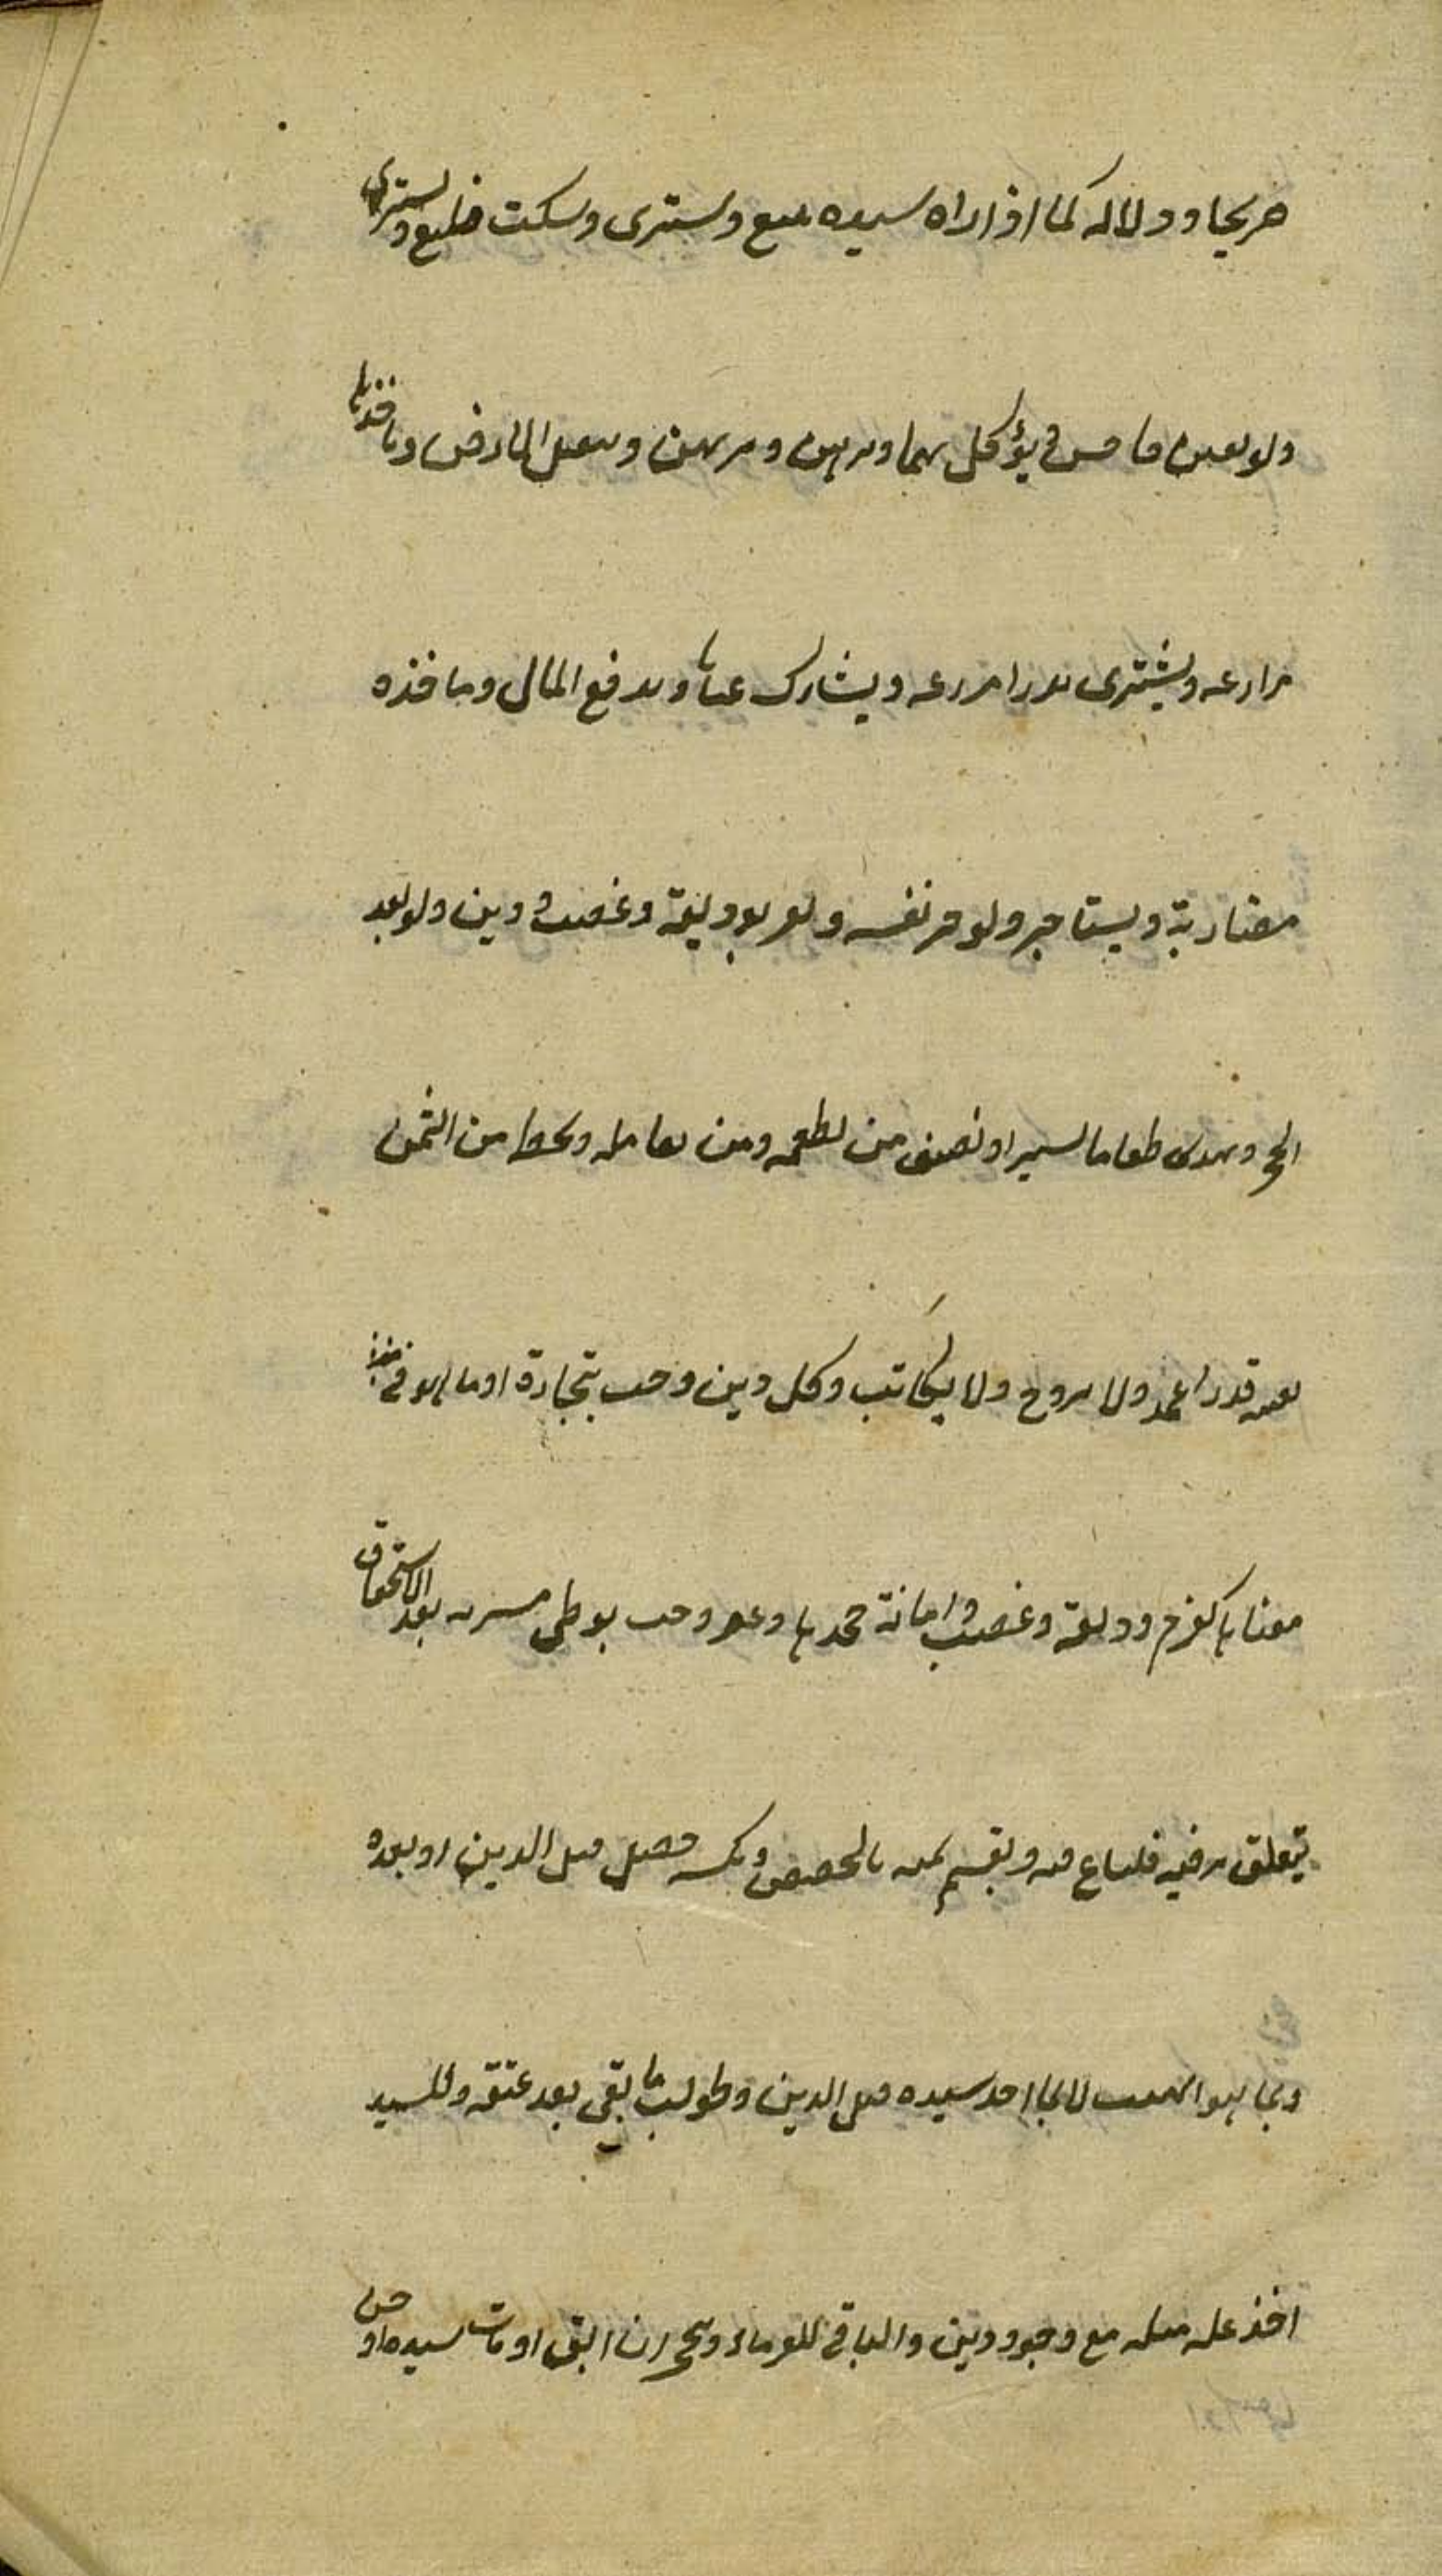 صريحا ودلالة كما اذا راه سيده يبيع ويشتري وسكت فيبيع ويشتري
ولو بغبن فاحش ويؤكل بهما ويرهن ويرتهن ويتقبل الارض وياخذها
مزارعة ويشترى بذرا يزرعه ويشارك عنانا ويدفع المال وياخذه
مضاربة ويستاجر ولو جر نفسه ويقر بوديعة وغصب ودين ولو بعد
الحجر ويهدى طعاما يسيرا ويضيف من يطعمه ومن يعامله ويحط من الثمن
بعيب قدرا عهد ولا يزوج ولا يكاتب وكل دين وجب بتجارة او بما هو في معناها
معناها كغرم ووديعة وغصب وامانة جحدها وعقر وجب بوطى مشرية بعد الاستحقاق
يتعلق برقبته فيباع فيه ويقسم ثمنه بالحصص وبكسبه حصل قبل الدين او بعده
وبما يهب له لا بما اخذ سيده قبل الدين وطولب بما بقي بعد عتقه وللسيد
اخذ غلة مثله مع وجود دين والباقي للغرماء وينحجر ان ابق او مات سيده او جن